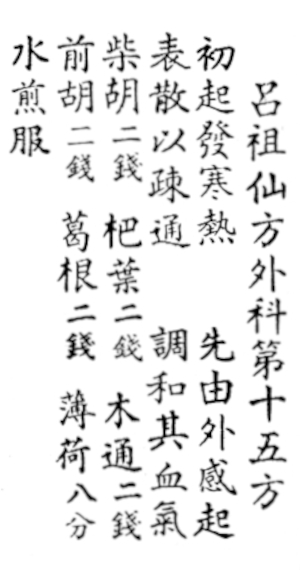 呂祖仙方外科第十五方
初起發寒熱　先由外感起
表散以疎通　調和其血氣
柴胡二錢　杷葉二錢　木通二錢
前胡二錢　葛根二錢　薄荷八分
水煎服